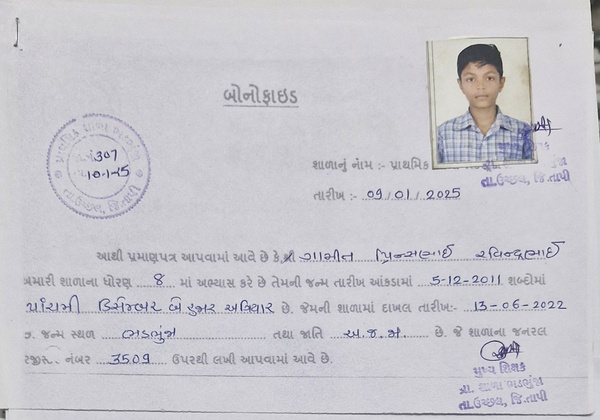 બોનોફાઇડ
પ્રાથમિક શાળા ભડભુંજા
નં. 307
10-1-25
તા.ઉચ્છલ, જિ.તાપી
શાળાનું નામ :- પ્રાથમિક ભડભુંજા
તા.ઉચ્છલ, જિ.તાપી
તારીખ :- 09/01/2025
આથી પ્રમાણપત્ર આપવામાં આવે છે કે, શ્રી ગામીત પ્રિન્સભાઈ રવિન્દ્રભાઈ
અમારી શાળાના ધોરણ 8 માં અભ્યાસ કરે છે તેમની જન્મ તારીખ આંકડામાં 5-12-2011 શબ્દોમાં
પાંચમી ડિસેમ્બર બે હજાર અગિયાર છે. જેમની શાળામાં દાખલ તારીખ:- 13-06-2022
છે. જન્મ સ્થળ ભડભુંજા તથા જાતિ અ.જ.જા. છે. જે શાળાના જનરલ
રજીસ્ટર નંબર 3509 ઉપરથી લખી આપવામાં આવે છે.
મુખ્ય શિક્ષક
પ્રા. શાળા ભડભુંજા
તા.ઉચ્છલ, જિ.તાપી